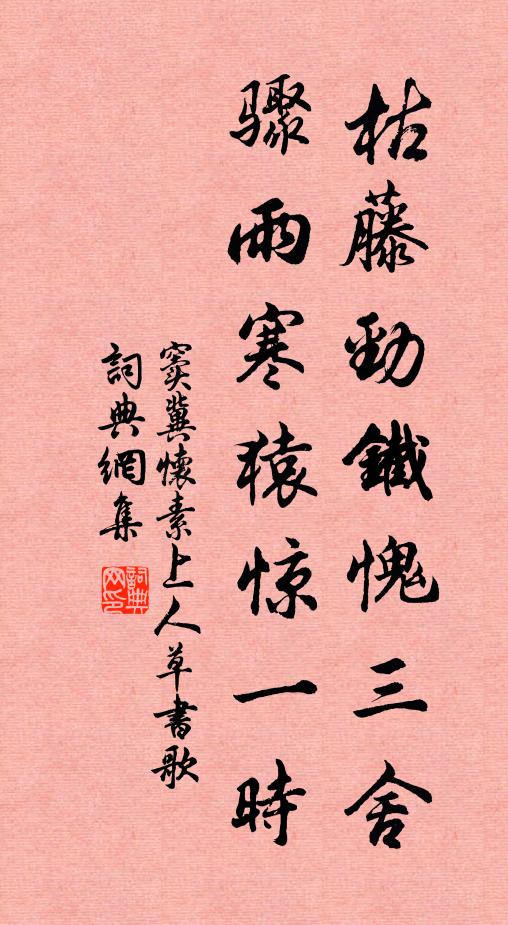 枯藤勁鐵愧三舍
驟雨寒猿惊一時
竇冀懷素上人草書歌
詞典網集
詞典网印